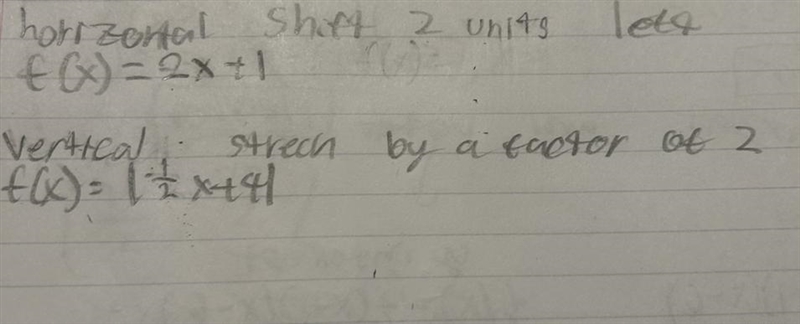 horizontal shift 2 units left
f(x) = 2x+1
vertical strech by a factor of 2
f(x) = |-1/2 x+4|